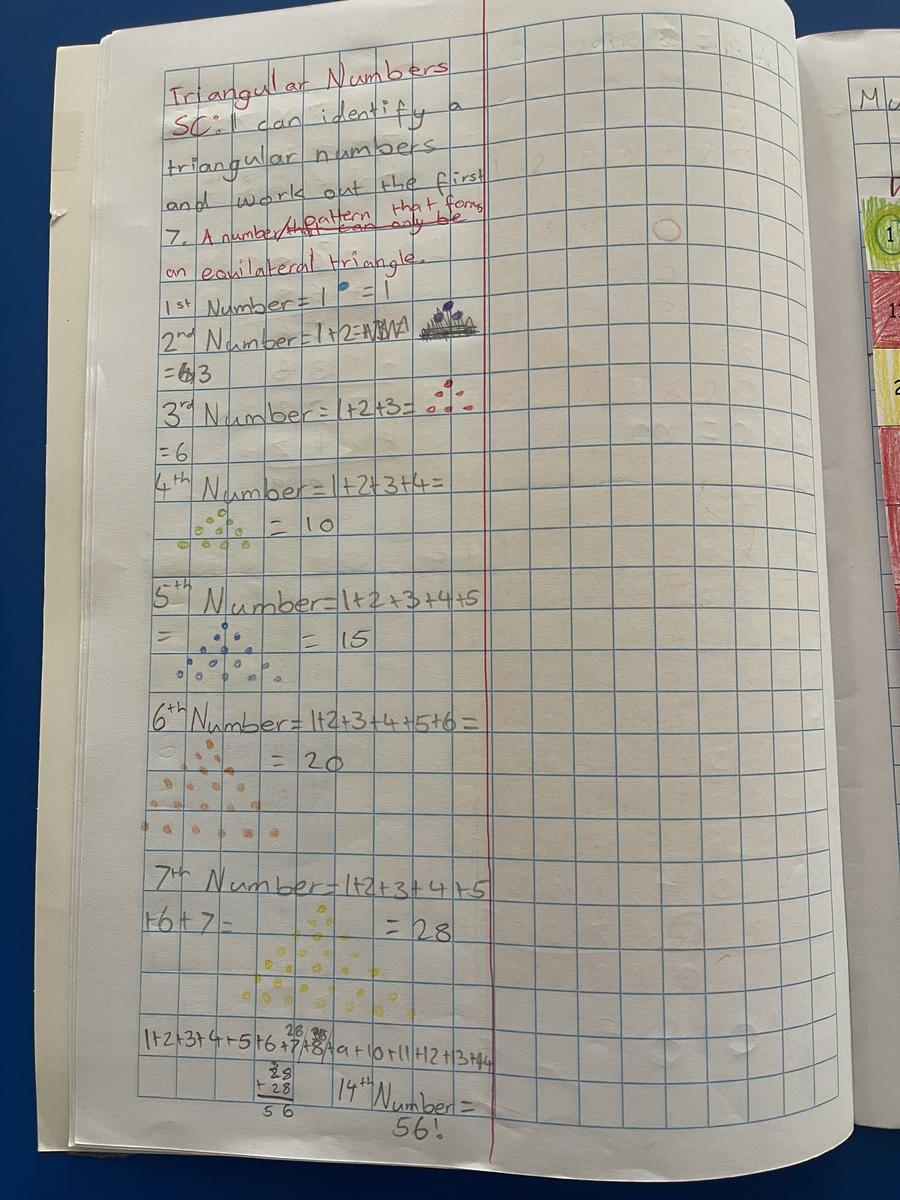 Triangular Numbers
SC: I can identify a
triangular numbers
and work out the first
7. A number/pattern that forms
that can only be
an equilateral triangle.
1st Number = 1 = 1
2nd Number = 1+2=
= 3
3rd Number = 1+2+3=
= 6
4th Number = 1+2+3+4=
= 10
5th Number = 1+2+3+4+5
= = 15
6th Number = 1+2+3+4+5+6=
= 20
7th Number = 1+2+3+4+5
+6+7= = 28
28
1+2+3+4+5+6+7+8+9+10+11+12+13+14
28
+ 28
56
14th Number =
56!
Mu
1
11
2